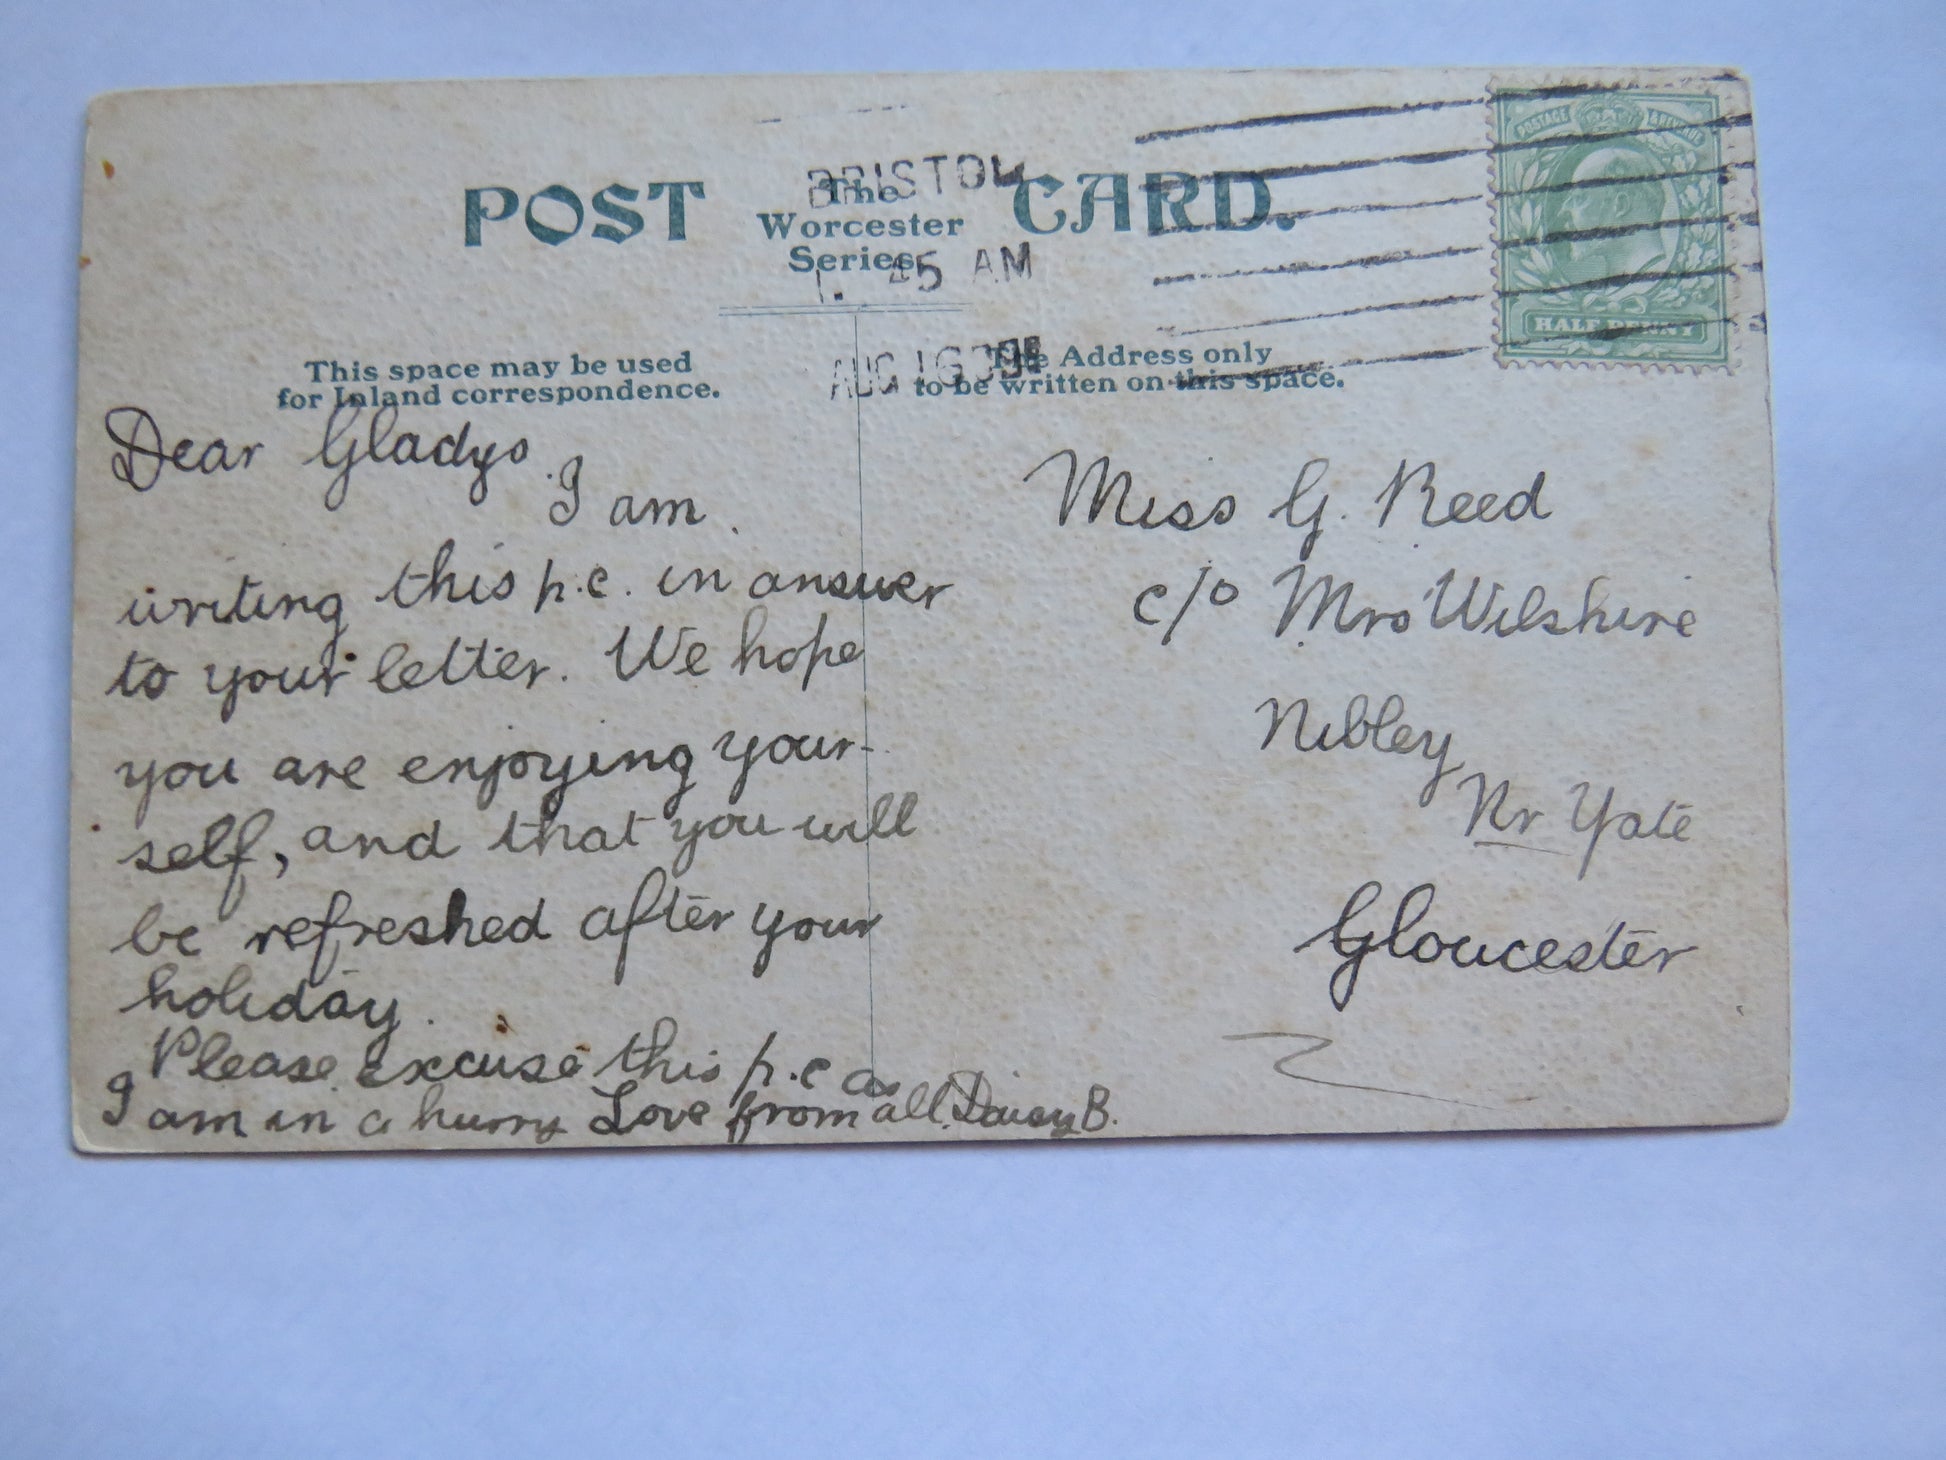 POST CARD.
The
Worcester
Series
BRISTOL
1. 45 AM
AUG 16
POSTAGE & REVENUE
HALF PENNY
This space may be used
for Inland correspondence.
The Address only
to be written on this space.
Dear Gladys.
I am
writing this p.c. in answer
to your letter. We hope
you are enjoying your-
self, and that you will
be refreshed after your
holiday.
Please excuse this p.c as
I am in a hurry Love from all. Daisy B.
Miss G. Reed
c/o Mrs Wilshire
Nibley
Nr Yate
Gloucester